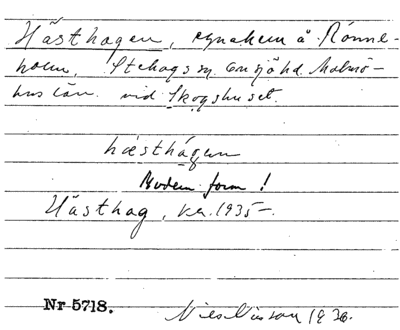 Hästhagen, egnahem å Rönne-
holm, Stehags sn Onsjö hd. Malmö-
hus län. vid Skogshuset.
hæsthágen
Modern form!
Hästhag, ka. 1935-.
Nr 5718.
Nils Nilsson 1936.